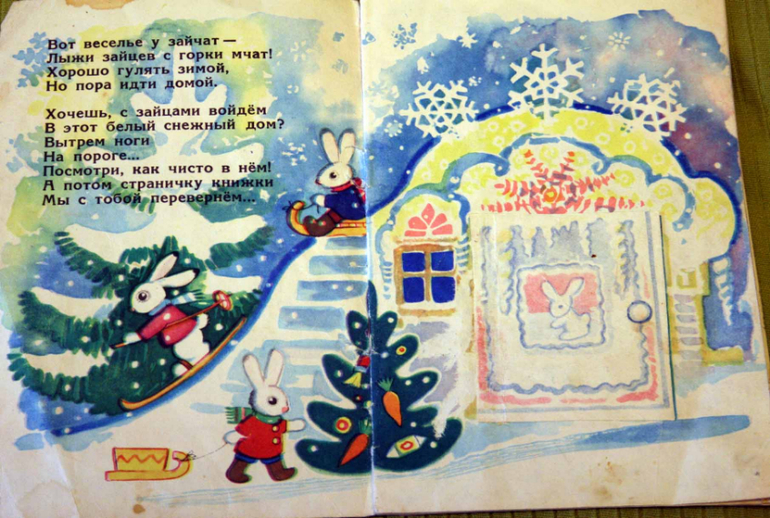 Вот веселье у зайчат —
Лыжи зайцев с горки мчат!
Хорошо гулять зимой,
Но пора идти домой.
Хочешь, с зайцами войдём
В этот белый снежный дом?
Вытрем ноги
На пороге...
Посмотри, как чисто в нём!
А потом страничку книжки
Мы с тобой перевернём...